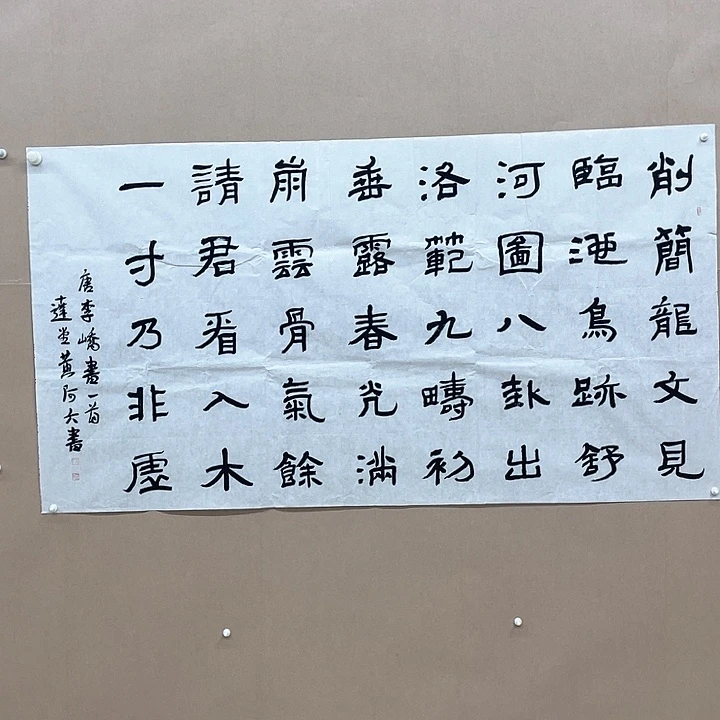 削簡龍文見
臨池鳥跡舒
河圖八卦出
洛範九疇初
垂露春光滿
崩雲骨氣餘
請君看入木
一寸乃非虛
唐李嶠書一首
達堂黃阿六書